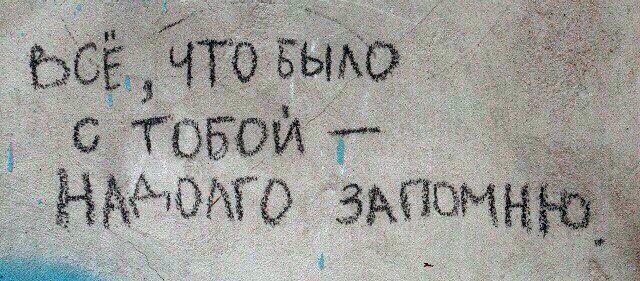 ВСЁ, ЧТО БЫЛО
С ТОБОЙ —
НАДОЛГО ЗАПОМНЮ.